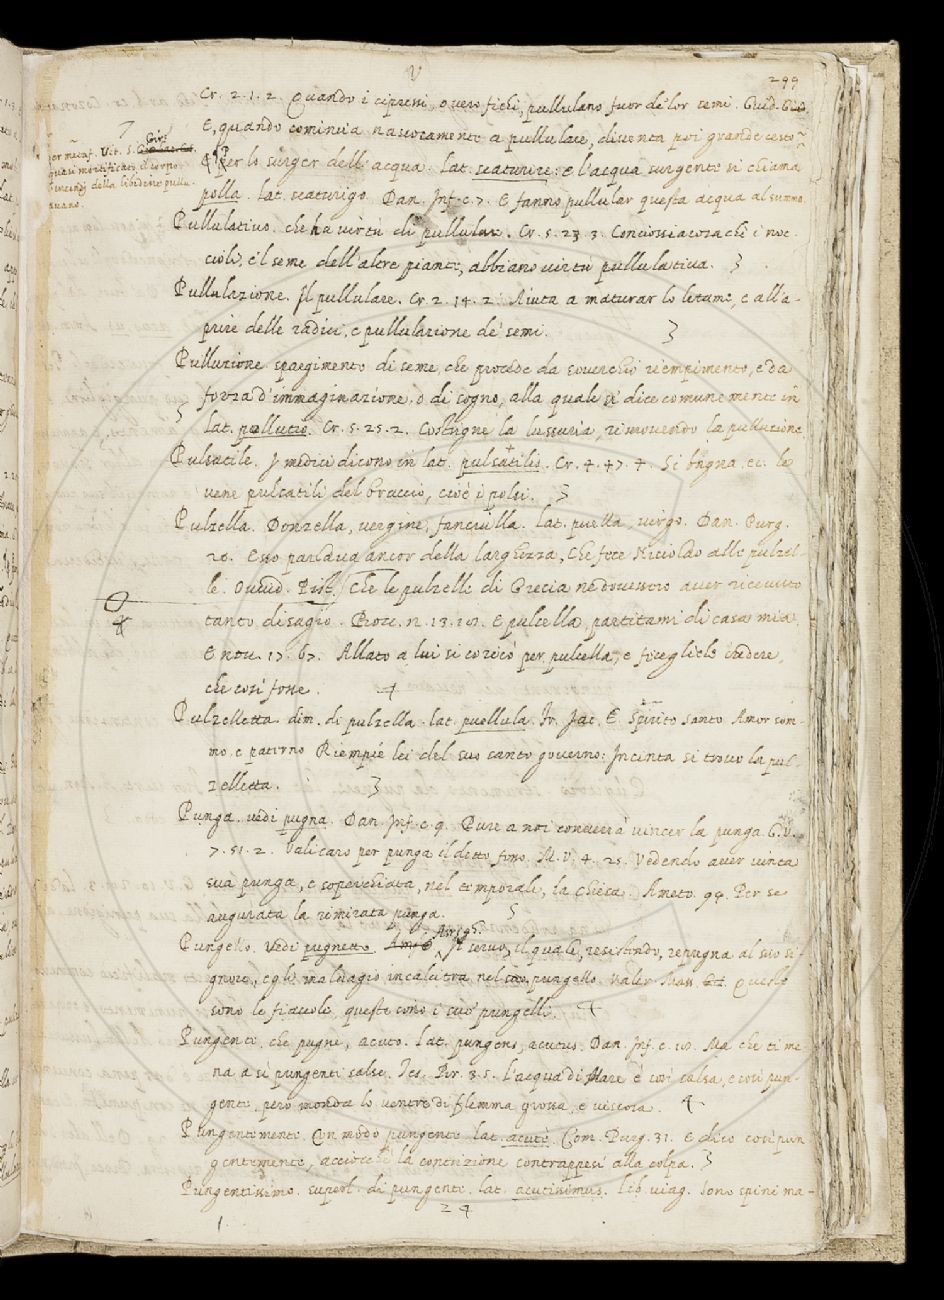 V
299
Cr. 2. 1. 2. Quando i cipressi, o vero fichi, pullulano fuor de' lor semi. Guid. Giu.
E, quando comincia nascocamente a pullulare, diventa poi grande cesto.
Per metaf. Vit. S. Gir.
quasi mortificato il corpo
incendj della libidine pullu
lavano.
¶ Per lo surger dell'acqua. lat. scaturire: e l'acqua surgente si chiama
polla. lat. scaturigo. Dan. Inf. c. 7. E fanno pullular questa acqua al summo
Pullulativo. che ha virtù di pullular. Cr. 5. 23. 3. Conciossiacosachè i noc-
cioli, e 'l seme dell'altre piante, abbiano virtù pullulativa.
Pullulazione. Il pullulare. Cr. 2. 14. 2. Aiuta a maturar lo letame, e all'a-
prire delle radici, e pullulazione de' semi.
Polluzione spargimento di seme, che procede da soverchio riempimento, e da
forza d'immaginazione, o di sogno, alla quale si dice comunemente in
lat. pollutio. Cr. 5. 25. 2. Costrigne la lussuria, rimovendo la polluzione
Pulsatile. I medici dicono in lat. pulsatilis. Cr. 4. 47. 4. Si bagna. ec. le
vene pulsatili del braccio, cioè i polsi.
Pulzella. Donzella, vergine, fanciulla. lat. puella, virgo. Dan. Purg.
20. Esso parlava ancor della larghezza, Che fece Niccolao alle pulzel-
le. Ovvid. Pist. Che le pulzelle di Grecia ne dovessero aver ricevuto
tanto disagio. Bocc. n. 13. 10. E pulcella, partitami di casa mia.
E nov. 17. 67. Allato a lui si coricò per pulcella, e fecegliele credere,
che così fosse.
Pulzelletta. dim. di pulzella. lat. puellula. Fr. Jac. E Spirito santo Amor som-
mo e paterno Riempiè lei del suo santo governo: Incinta si trovò la pul-
zelletta.
Punga. vedi pugna. Dan. Inf. c. 9. Pure a noi converrà vincer la punga. G. V.
7. 51. 2. Valicaro per punga il detto fosso. M. V. 4. 25. Vedendo aver vinta
sua punga, e soperchiata, nel temporale, la Chiesa. Ameto. 99. Per se
augurata la rimirata punga.
Pungello. Vedi pugnetto. Il servo, il quale, resistendo, repugna al suo si-
gnore, egli malvagio incalcitra nel suo pungello. Valer. Mass. Queste
sono le fiaccole, queste sono i suo' pungelli.
Pungente. che pugne, acuto. lat. pungens, acutus. Dan. Inf. c. 10. Ma che ti me-
na a sì pungenti salse. Tes. Pov. 35. L'acqua di Mare è così salsa, e così pun-
gente, però monda lo ventre di flemma grossa, e viscosa.
Pungentemente. Con modo pungente. lat. acute. Com. Purg. 31. E dico così pun
gentemente, acciocchè la contrizione contrappesi alla colpa.
Pungentissimo. superl. di pungente. lat. acutissimus. Lib. viag. Sono spini ma-
24